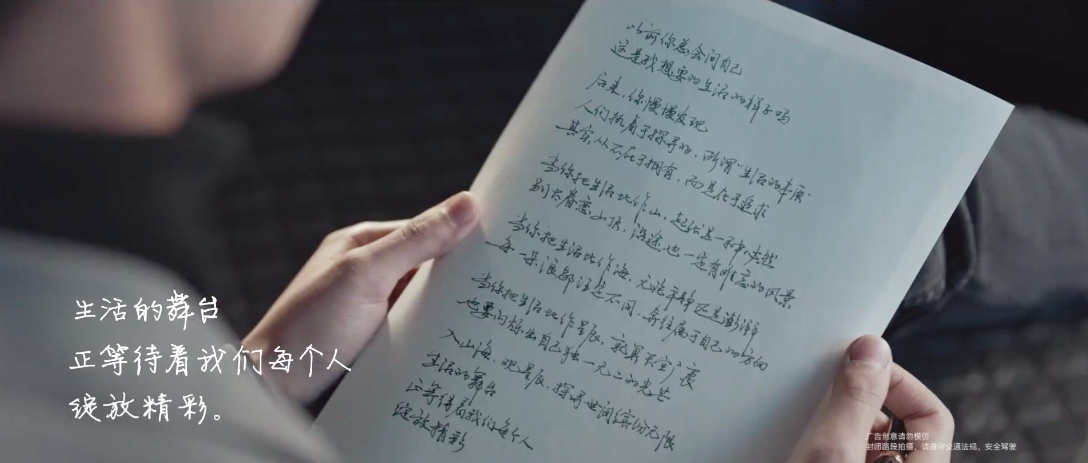 以前你总会问自己
这是我想要的生活的样子吗
后来,你慢慢发现
人们执着于探寻的,所谓“生活的本质”
其实从不在于拥有,而是在于追求
当你把生活比作山,起伏是一种必然
别太眷恋山顶,沿途也一定有难忘的风景
当你把生活比作海,无论平静还是澎湃
每一朵浪都注定不同,奔往属于自己的方向
当你把生活比作星辰,就算天空广袤
也要闪烁出自己独一无二的光芒
入山海,吧星辰,探寻世间缤纷无限
生活的舞台
正等待着我们每个人
绽放精彩
生活的舞台
正等待着我们每个人
绽放精彩。
广告创意请勿模仿
封闭路段拍摄,请遵守交通法规,安全驾驶